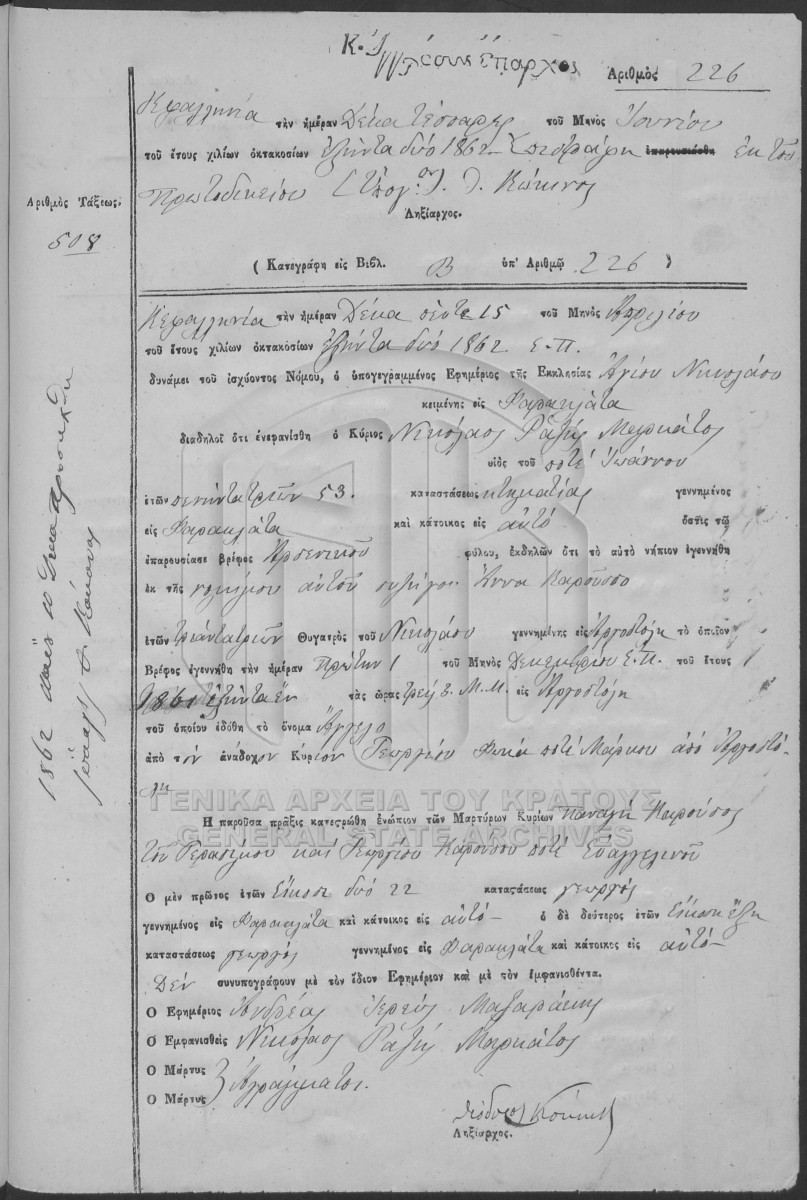 Ἀριθμὸς 226
Κεφαλληνία τὴν ἡμέραν Δέκα τέσσαρες τοῦ Μηνὸς Ἰουνίου
τοῦ ἔτους χιλίων ὀκτακοσίων ἑξῆντα δυὸ 1862 ἐκ τοῦ
Πρωτοδικείου
Ληξίαρχος.
Ἀριθμὸς Τάξεως.
508
( Κατεγράφη εἰς Βιβλ. Β ὑπ' Ἀριθμῷ 226 )
Κεφαλληνία τὴν ἡμέραν Δέκα πέντε 15 τοῦ Μηνὸς Ἀπριλίου
τοῦ ἔτους χιλίων ὀκτακοσίων ἑξῆντα δυὸ 1862. Ε.Π.
δυνάμει τοῦ ἰσχύοντος Νόμου, ὁ ὑπογεγραμμένος Ἐφημέριος τῆς Ἐκκλησίας Ἁγίου Νικολάου
κειμένης εἰς Φαρακλάτα
διαδηλοῖ ὅτι ἐνεφανίσθη ὁ Κύριος Νικόλαος Ῥάζης Μαρκάτος
υἱὸς τοῦ ποτὲ Ἰωάννου
ἐτῶν πενῆντα τριῶν 53. καταστάσεως κτηματίας γεννημένος
εἰς Φαρακλάτα καὶ κάτοικος εἰς αὐτό ὅστις τῷ
ἐπαρουσίασε βρέφος Ἀρσενικοῦ φύλου, ἐκδηλῶν ὅτι τὸ αὐτὸ νήπιον ἐγεννήθη
ἐκ τῆς νομίμου αὐτοῦ συζύγου Ἄννα Καρούσο
ἐτῶν τριάντα τριῶν Θυγατρὸς τοῦ Νικολάου γεννημένης εἰς Ἀργοστόλη τὸ ὁποῖον
Βρέφος ἐγεννήθη τὴν ἡμέραν πρώτην 1 τοῦ Μηνὸς Δεκεμβρίου Ε.Π. τοῦ ἔτους
1861 ἑξῆντα ἓν τὰς ὥρας τρεῖς 3. Μ.Μ. εἰς Ἀργοστόλη
τοῦ ὁποίου ἐδόθη τὸ ὄνομα Ἄγγελο
ἀπὸ τὸν ἀνάδοχον Κύριον Γεωργίου Φωκᾶ ποτὲ Μάρκου ἀπὸ Ἀργοστό-
λη
ΓΕΝΙΚΑ ΑΡΧΕΙΑ ΤΟΥ ΚΡΑΤΟΥΣ
GENERAL STATE ARCHIVES
Ἡ παροῦσα πρᾶξις κατεστρώθη ἐνώπιον τῶν Μαρτύρων Κυρίων Παναγῆ Καρούσος
τοῦ Γερασίμου καὶ Γεωργίου Καρούσου ποτὲ Εὐαγγελινοῦ
Ὁ μὲν πρῶτος ἐτῶν Εἴκοσι δυὸ 22 καταστάσεως γεωργός
γεννημένος εἰς Φαρακλάτα καὶ κάτοικος εἰς αὐτό ὁ δὲ δεύτερος ἐτῶν Εἴκοσι ἕξη
καταστάσεως γεωργός γεννημένος εἰς Φαρακλάτα καὶ κάτοικος εἰς αὐτό
Δὲν συνυπογράφουν μὲ τὸν ἴδιον Ἐφημέριον καὶ μὲ τὸν ἐμφανισθέντα.
Ὁ Ἐφημέριος Ἀνδρέας Ἱερεὺς Μαζαράκης
Ὁ Ἐμφανισθεὶς Νικόλαος Ῥάζης Μαρκάτος
Ὁ Μάρτυς
Ὁ Μάρτυς Ἀγράμματοι.
Ληξίαρχος.